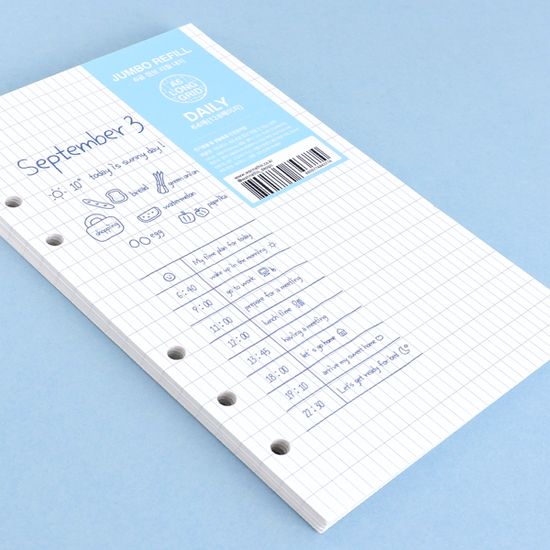 JUMBO REFILL
A6 LONG GRID
DAILY
September 3
10° today is sunny day!
bread
green onion
shopping
watermelon
paprika
egg
My time plan for today
6:40 wake up in the morning
9:00 go to work
11:00 prepare for a meeting
12:00 lunch time
13:45 having a meeting
18:00 let's go home
19:10 arrive my sweet home
22:30 Let's get ready for bed